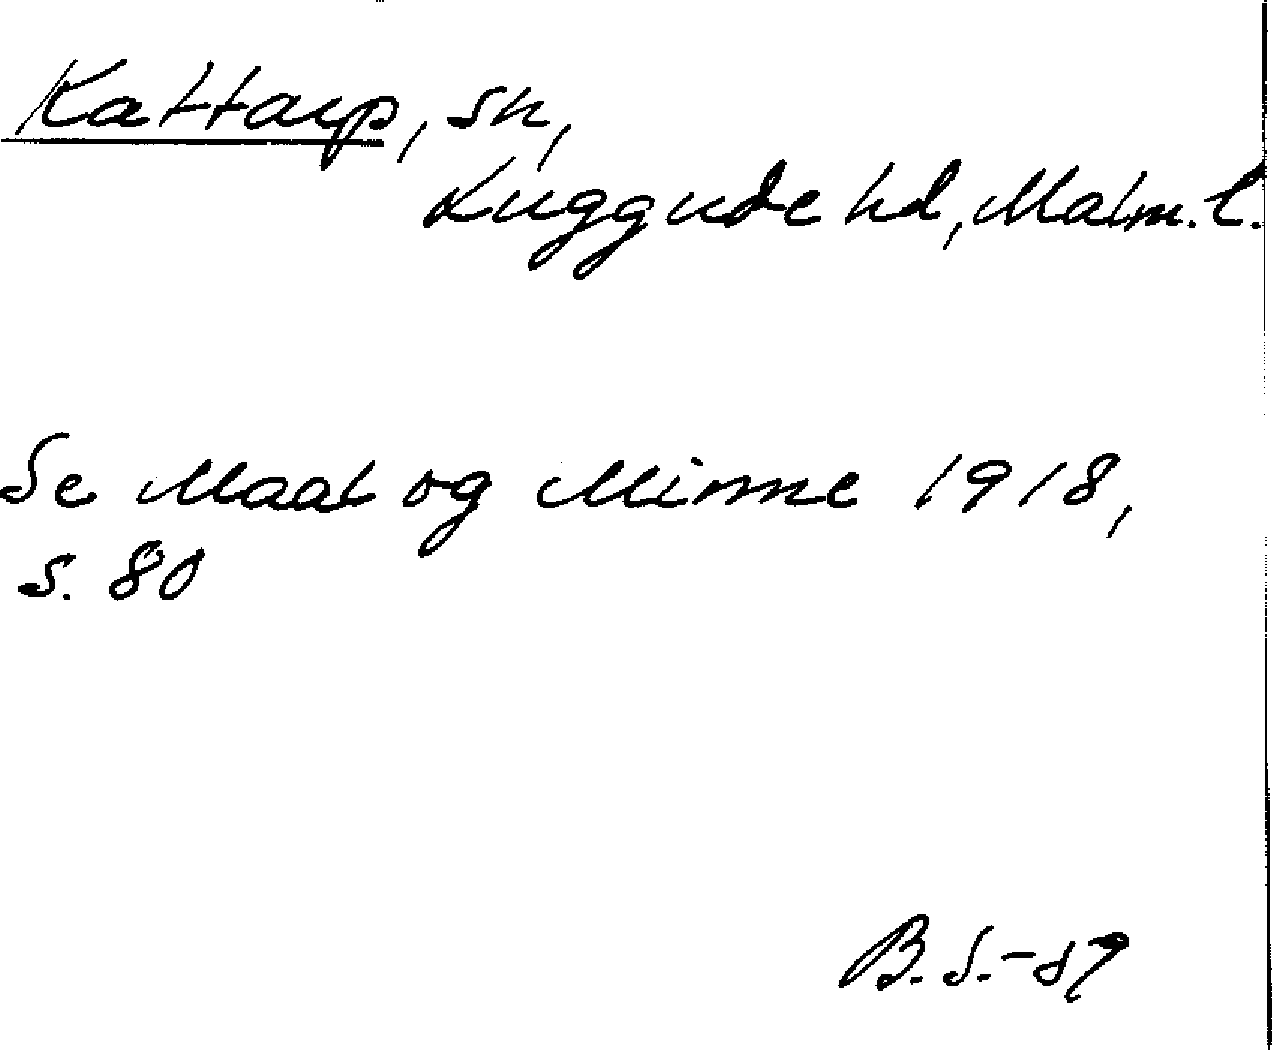 Kattarp, sn,
Luggude hd, Malm. l.
Se Maal og Minne 1918,
s. 80
B. S. - 89